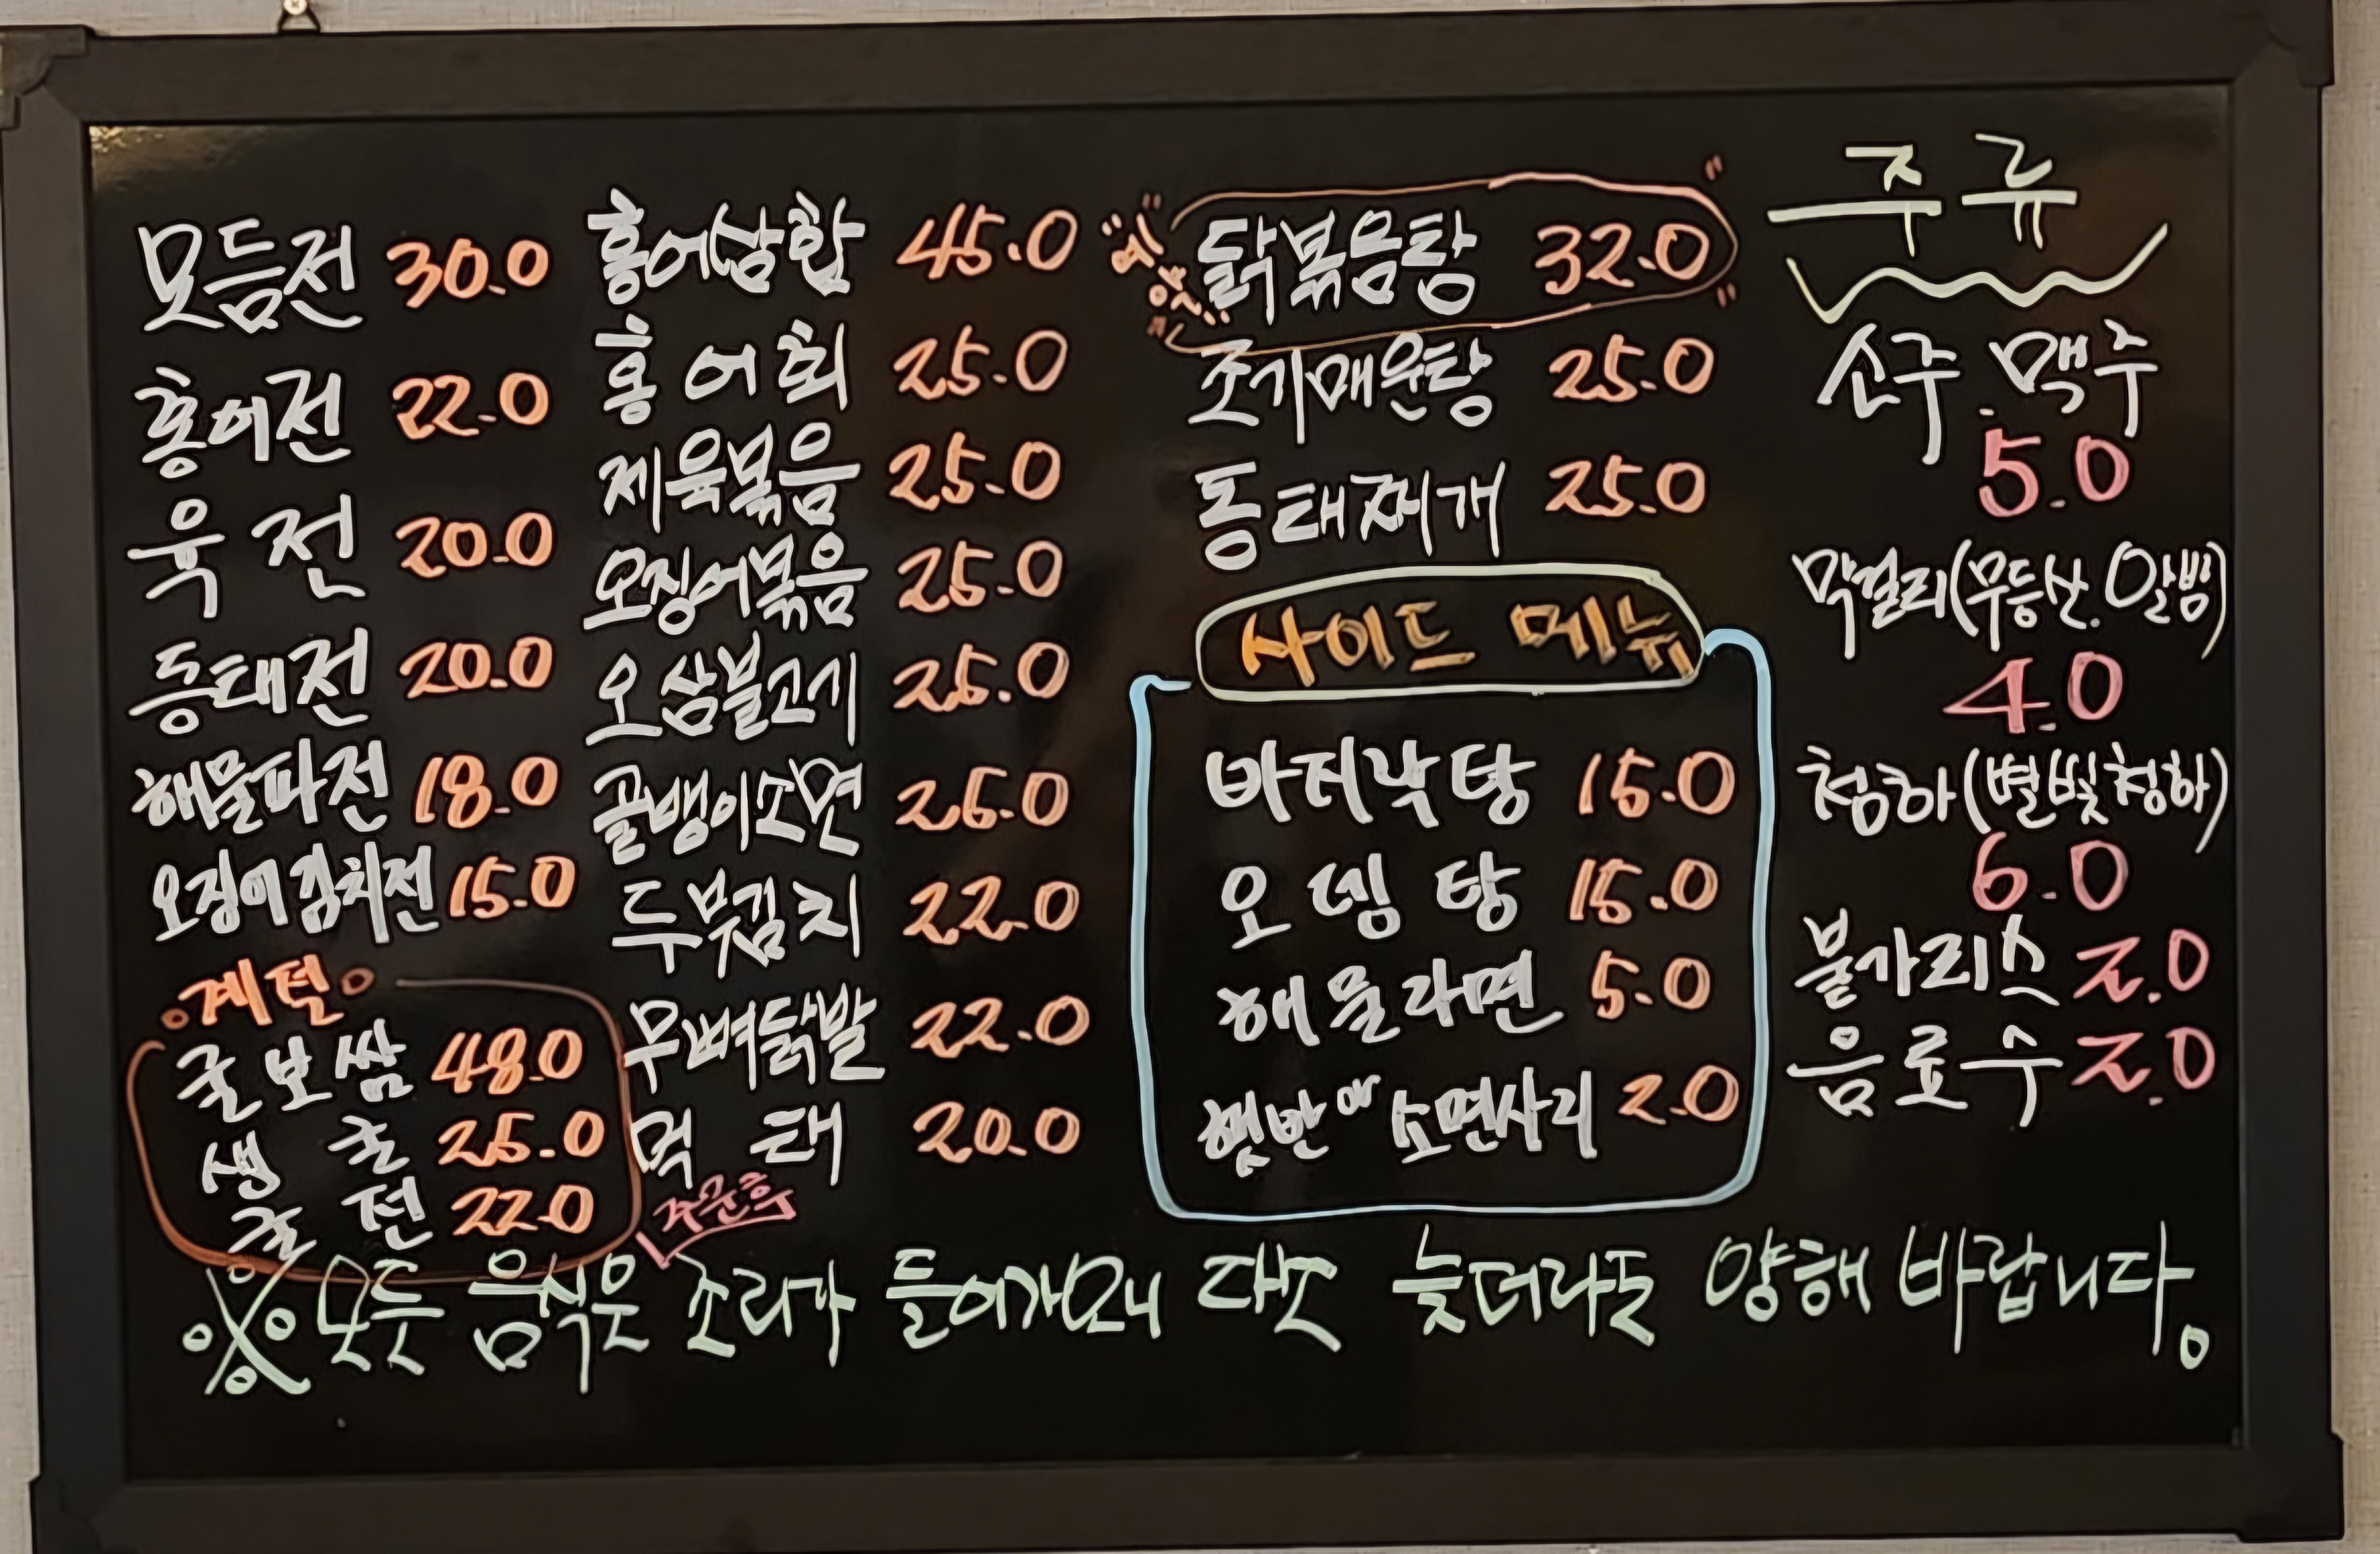 모듬전 30.0
홍어전 22.0
육전 20.0
동태전 20.0
해물파전 18.0
오징어김치전 15.0
계절
굴보쌈 48.0
생굴 25.0
굴전 22.0
홍어삼합 45.0
홍어회 25.0
제육볶음 25.0
오징어볶음 25.0
오삼불고기 25.0
골뱅이소면 25.0
두부김치 22.0
무뼈닭발 22.0
먹태 20.0
"예약"
닭볶음탕 32.0
조기매운탕 25.0
동태찌개 25.0
사이드 메뉴
바지락탕 15.0
오뎅탕 15.0
해물라면 5.0
햇반 소면사리 2.0
주류
소주.맥주
5.0
막걸리(무등산.알밤)
4.0
청하(별빛청하)
6.0
불가리스 2.0
음료수 2.0
주문후
※모든 음식은 조리가 들어가오니 다소 늦더라도 양해 바랍니다.